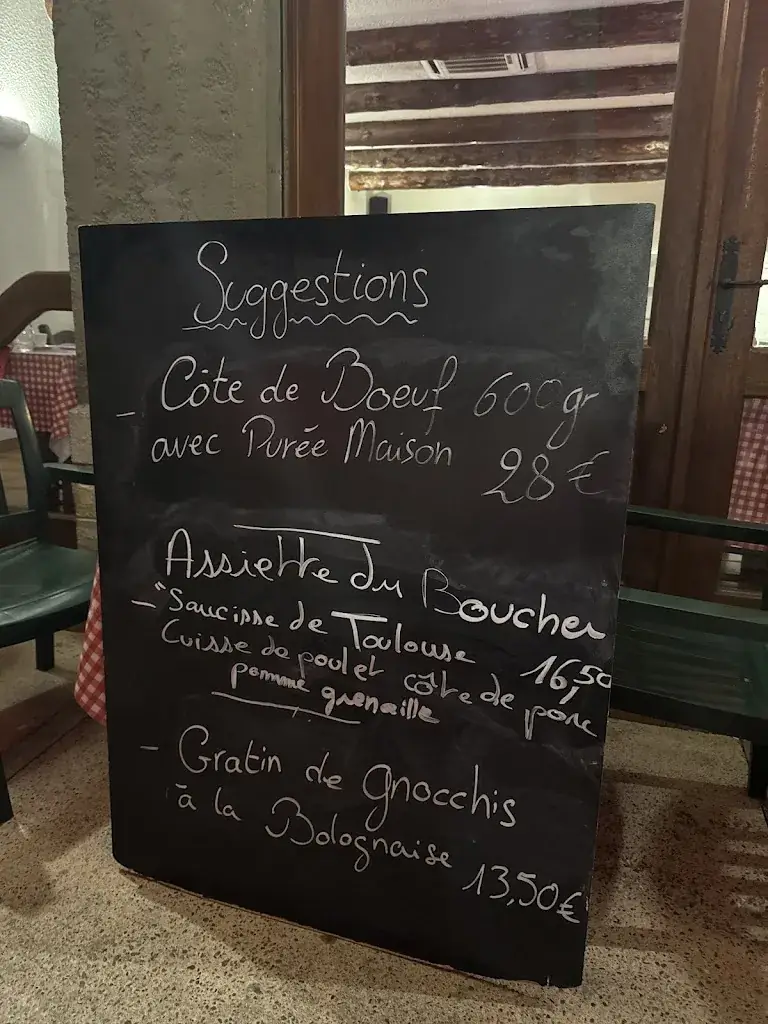 Suggestions
- Côte de Boeuf 600gr
avec Purée Maison 28€
Assiette du Boucher
- "Saucisse de Toulouse 16,50
Cuisse de poulet côte de porc
pomme grenaille
- Gratin de gnocchis
à la Bolognaise 13,50€